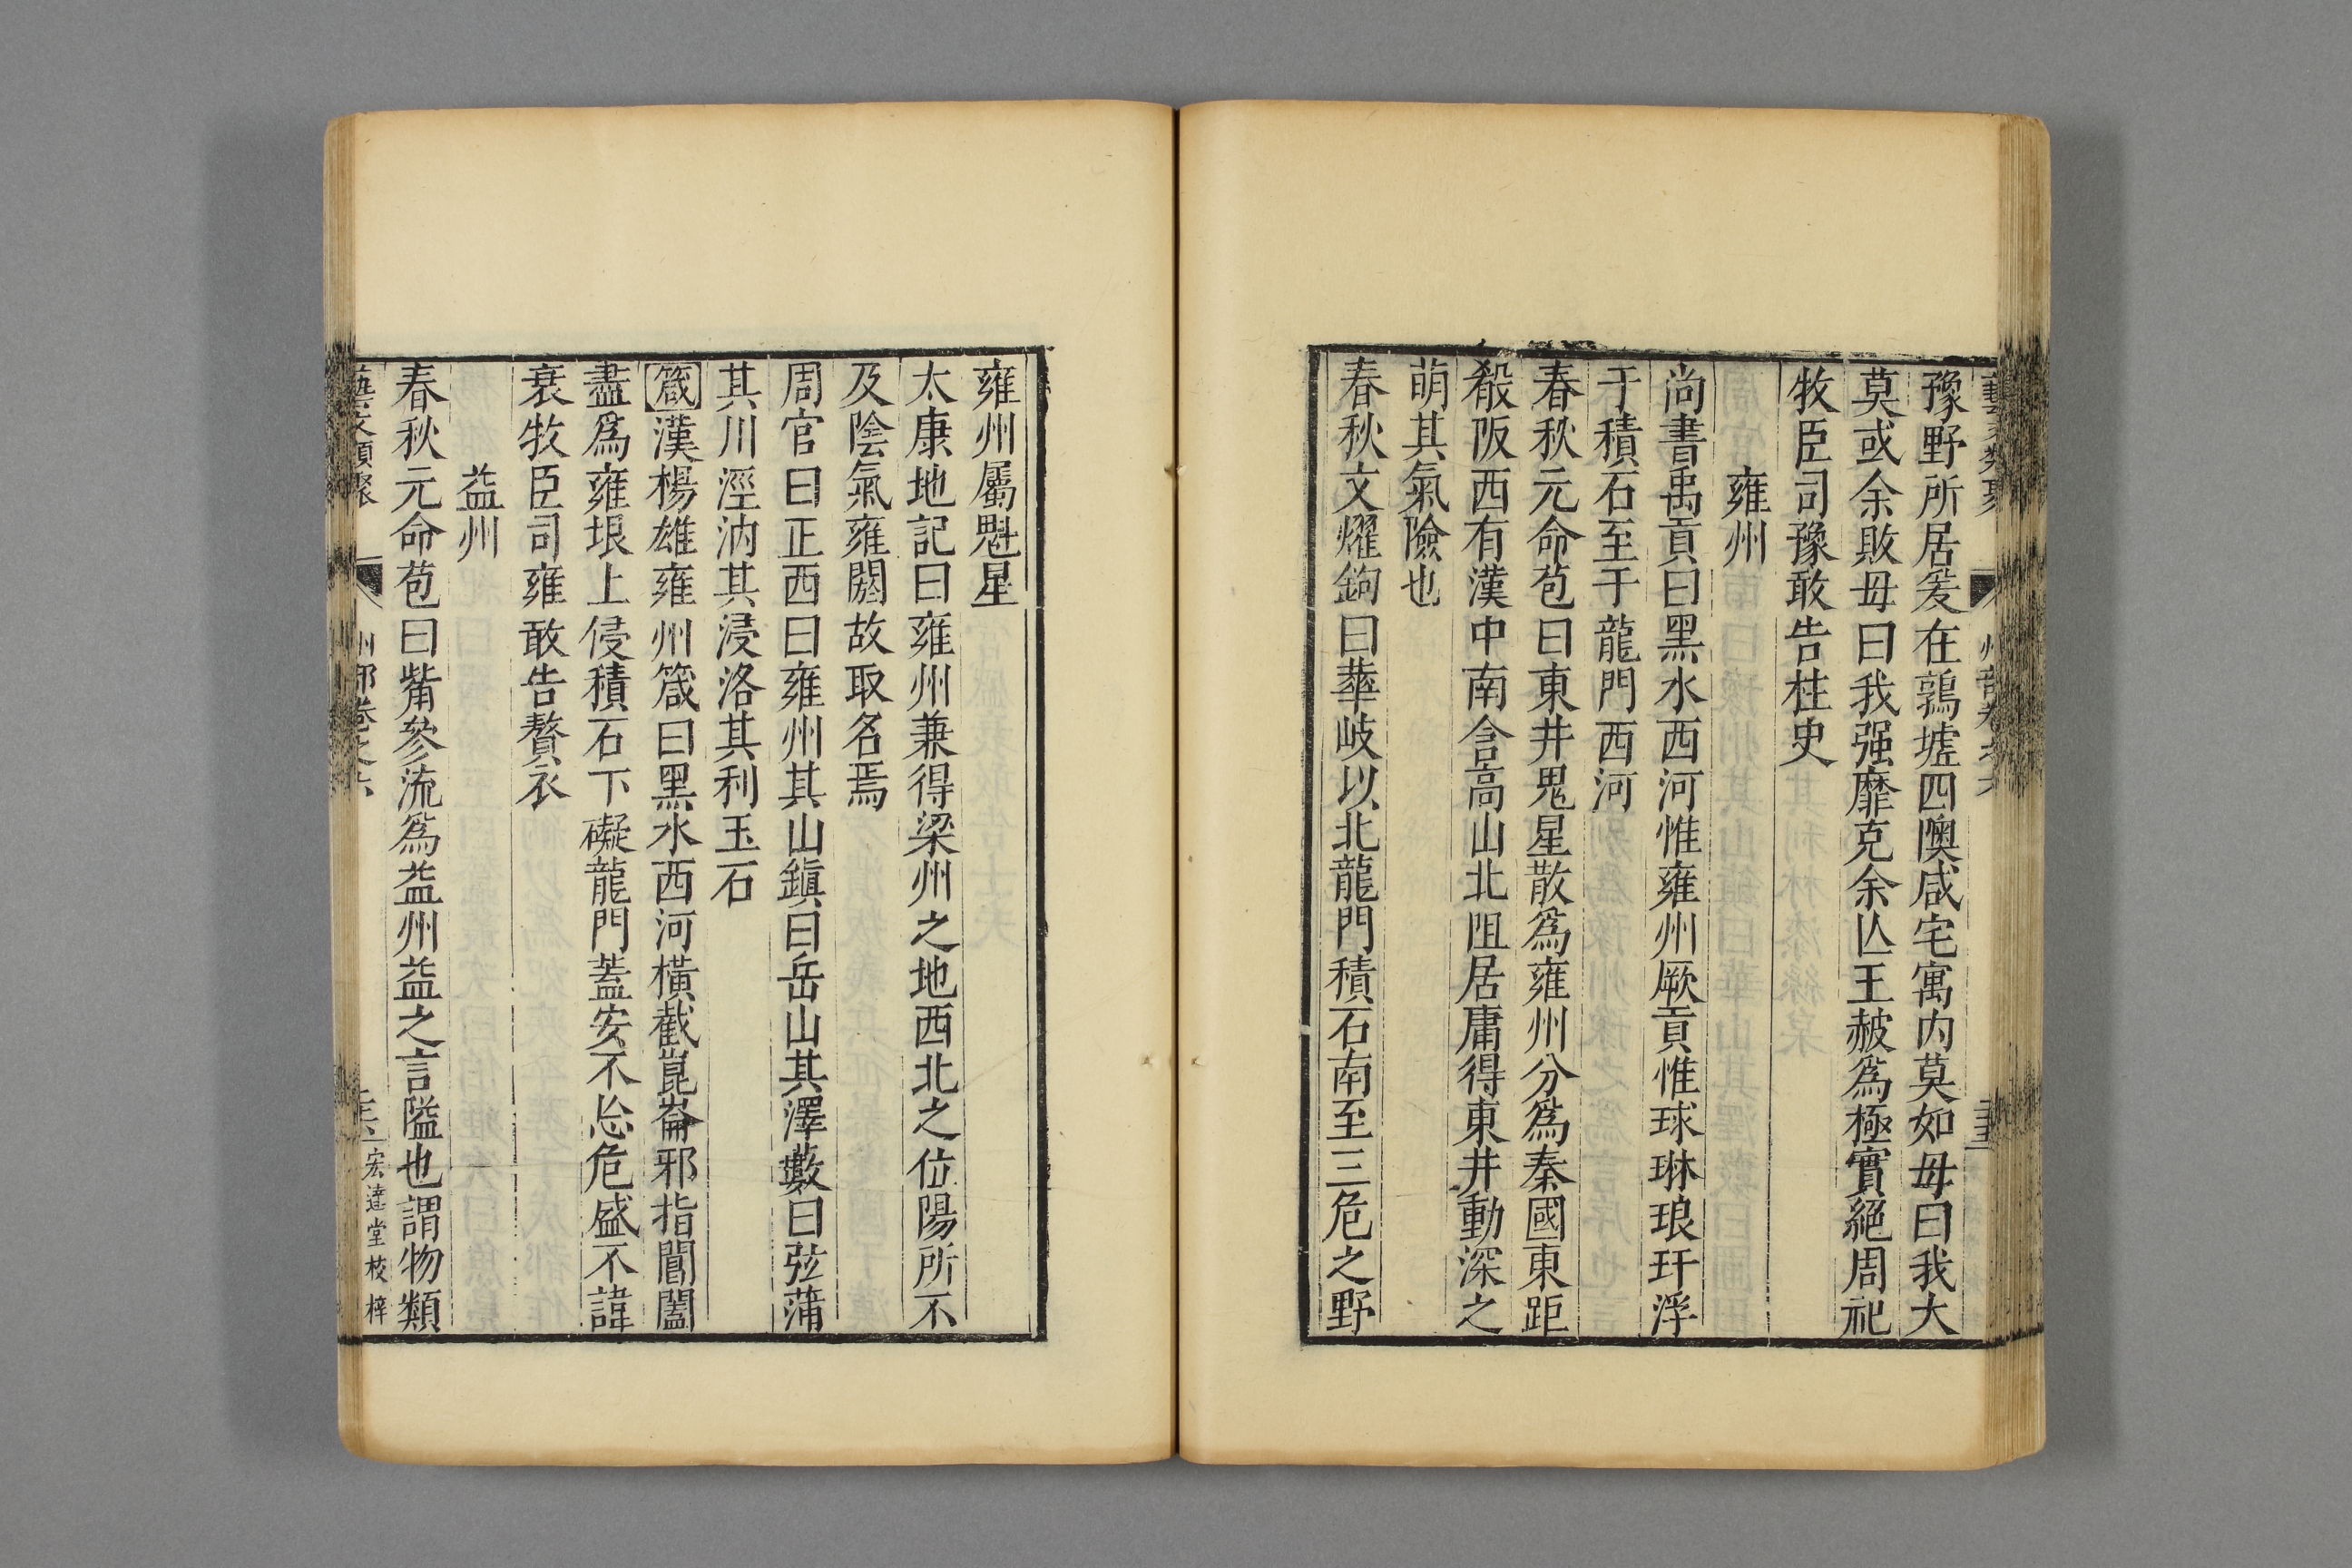 豫野所居爰在鶉墟四隩咸宅寓内莫如毋曰我大
莫或余敗毋曰我强靡克余亾王赧爲極實絕周祀
牧臣司豫敢告柱史
雍州
尚書禹貢曰黑水西河惟雍州厥貢惟球琳琅玕浮
于積石至于龍門西河
春秋元命苞曰東井鬼星散爲雍州分爲秦國東距
殽阪西有漢中南含高山北阻居庸得東井動深之
萌其氣險也
春秋文燿鉤曰華岐以北龍門積石南至三危之野
雍州屬魁星
太康地記曰雍州兼得梁州之地西北之位陽所不
及陰氣雍閼故取名焉
周官曰正西曰雍州其山鎮曰岳山其澤藪曰弦蒲
其川涇汭其浸洛其利玉石
箴漢楊雄雍州箴曰黑水西河橫截崑崙邪指閶闔
盡爲雍垠上侵積石下礙龍門蓋安不忘危盛不諱
衰牧臣司雍敢告贅衣
益州
春秋元命苞曰觜參流爲益州益之言隘也謂物類
宏達堂校梓